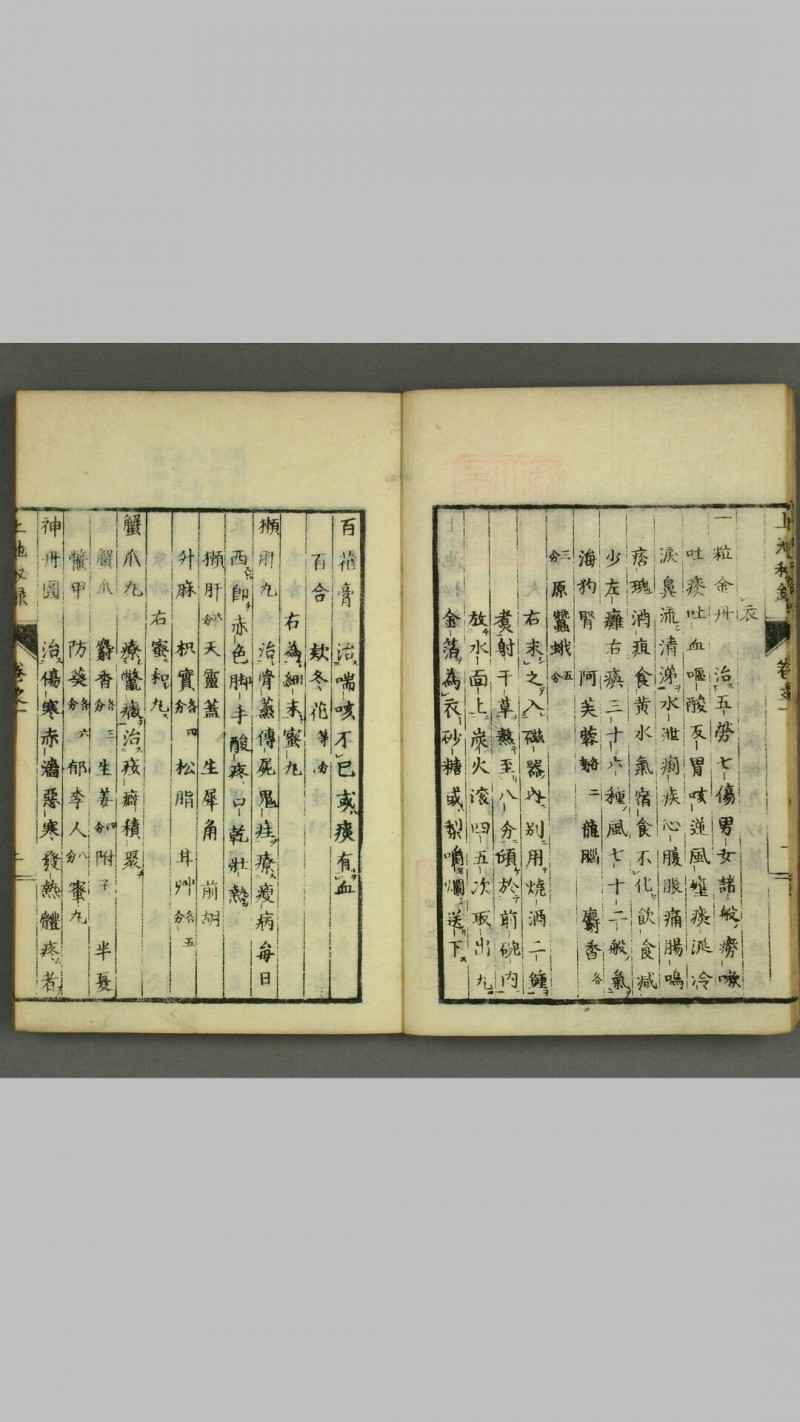 衣
一粒金丹 治五勞七傷男女諸般癆嗽
吐痰吐血嘔酸反胃咳逆風壅痰涎冷
淚鼻流清涕水泄痢疾心腹脹痛腸鳴
痞塊消疽食黄水氣宿食不化飲食减
少左癱右瘓三十六種風七十二般氣
海狗腎 阿芙蓉 二 龍腦 麝香各
三分 原蠶蛾五分
右末之入磁器内別用燒酒二鍾
煮射干草熬至八分傾於前碗内
放水面上炭火滾四五次取出丸
金箔為衣砂糖或梨嚼爛送下
百花膏 治喘咳不已或痰有血
百合 款冬花等分
右為細末蜜丸
獺肝丸 治骨蒸傳屍鬼疰療瘦病每日
西即赤色脚手酸疼口乾壯熱
獺肝六分 天靈蓋 生犀角 前胡
升麻 枳實各四分 松脂 甘艸各五分
右蜜和丸
蟹爪丸 療鱉癥治痃癖積聚
蟹爪 麝香各三分 生姜四分 附子 半夏
鱉甲 防葵各六分 郁李人八分 蜜丸
神丹圓 治傷寒赤濇惡寒發熱體疼者